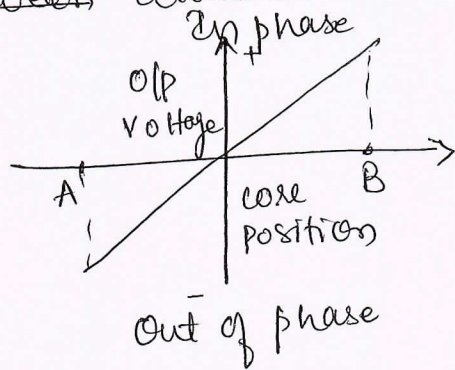 In phase
+
O/P
Voltage
A
B
core
position
-
Out of phase